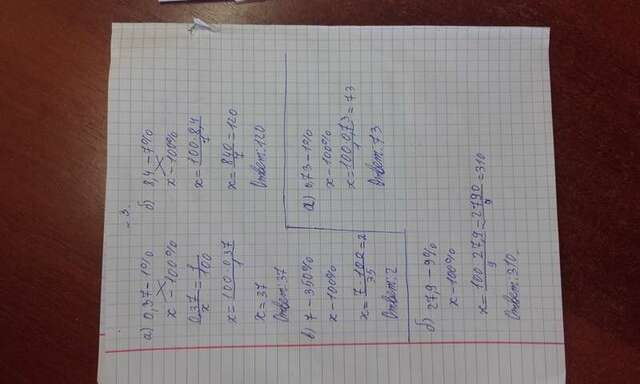 - 3.
а) 0,37 - 1%
x - 100%
0,37/x = 1/100
x = 100·0,37/1
x = 37
Ответ: 37
б) 8,4 - 7%
x - 100%
x = 100·8,4/7
x = 840/7 = 120
Ответ: 120
в) 7 - 350%
x - 100%
x = 7·100/35 = 2
Ответ: 2
а) 0,73 - 1%
x - 100%
x = 100·0,73/1 = 73
Ответ: 73
б) 27,9 - 9%
x - 100%
x = 100·27,9/9 = 2790/9 = 310
Ответ: 310.